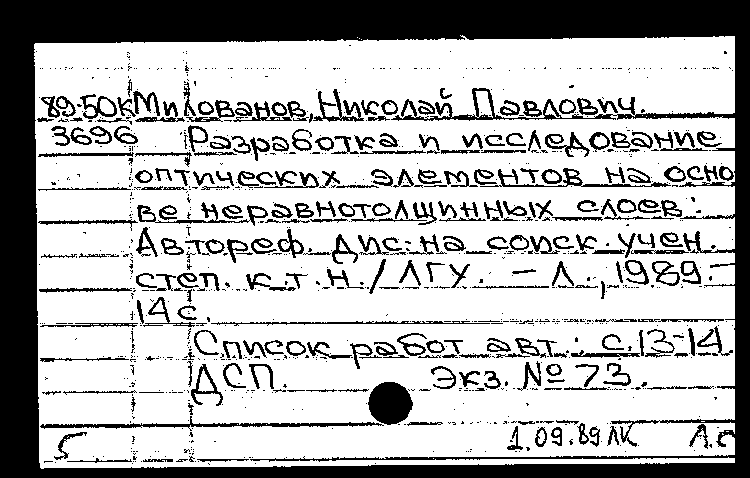 89-50К Милованов, Николай Павлович.
3696 Разработка и исследование
оптических элементов на осно
ве неравнотолщинных слоев:
Автореф. дис. на соиск. учен.
степ. к.т.н./ЛГУ. - Л., 1989.-
14 с.
Список работ авт.: с.13-14.
ДСП. Экз. № 73.
5 1.09.89 ЛК Л.С